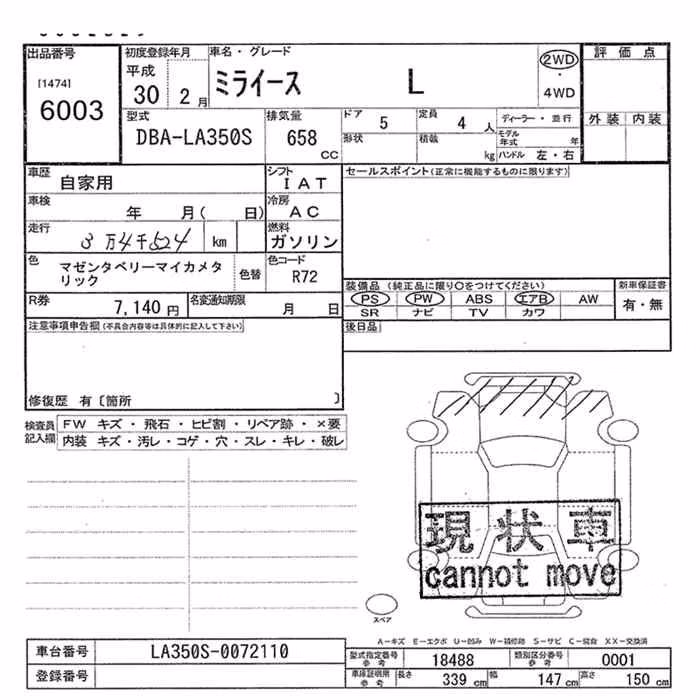 出品番号 初度登録年月 車名・グレード 評価点
[1474] 平成 ミライース L 2WD
6003 30 2月 ・ 4WD
型式 排気量 ドア 5 定員 4人 ディーラー・並行 外装 内装
DBA-LA350S 658 cc 形状 積載 kg モデル年式 年 ハンドル 左・右
車歴 自家用 シフト IAT セールスポイント(正常に機能するものに限ります)
車検 年 月( 日) 冷房 AC
走行 3万4千524 km 燃料 ガソリン
色 マゼンタベリーマイカメタリック 色替 色コード R72
装備品(純正品に限り○をつけてください) 新車保証書
PS PW ABS エアB AW 有・無
R券 7,140円 名変通知期限 月 日 SR ナビ TV カワ
注意事項申告欄(不具合内容等は具体的に記入して下さい) 後日品
修復歴 有〔箇所 〕
検査員記入欄 FW キズ・飛石・ヒビ割・リペア跡・×要
内装 キズ・汚レ・コゲ・穴・スレ・キレ・破レ
現状車
cannot move
スペア
A-キズ E-エクボ U-凹み W-補修跡 S-サビ C-腐食 XX-交換済
車台番号 LA350S-0072110 型式指定番号 参考 18488 類別区分番号 参考 0001
登録番号 車庫証明用 参考 長さ 339cm 幅 147cm 高さ 150cm